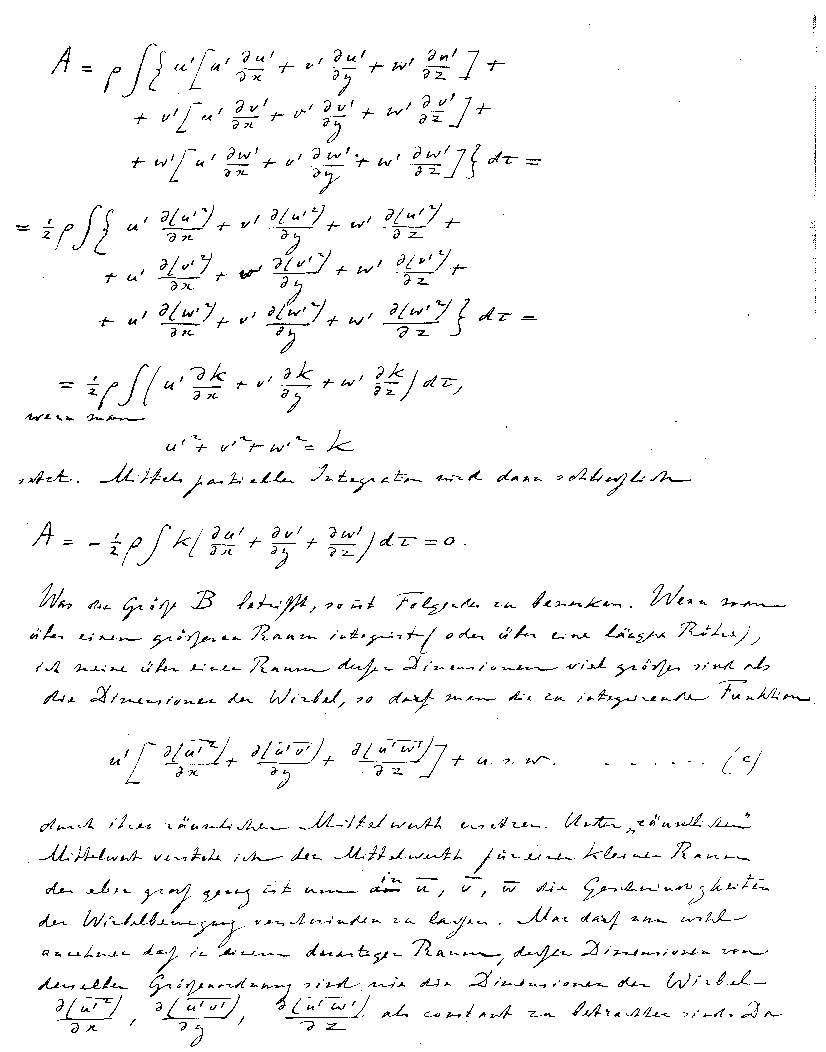 A = ρ ∫ { u' [ u' ∂u'/∂x + v' ∂u'/∂y + w' ∂u'/∂z ] +
+ v' [ u' ∂v'/∂x + v' ∂v'/∂y + w' ∂v'/∂z ] +
+ w' [ u' ∂w'/∂x + v' ∂w'/∂y + w' ∂w'/∂z ] } dτ =
= ½ ρ ∫ { u' ∂(u'²)/∂x + v' ∂(u'²)/∂y + w' ∂(u'²)/∂z +
+ u' ∂(v'²)/∂x + v' ∂(v'²)/∂y + w' ∂(v'²)/∂z +
+ u' ∂(w'²)/∂x + v' ∂(w'²)/∂y + w' ∂(w'²)/∂z } dτ =
= ½ ρ ∫ ( u' ∂k/∂x + v' ∂k/∂y + w' ∂k/∂z ) dτ,
wenn man
u'² + v'² + w'² = k
setzt. Mittels partieller Integration wird dann schliesslich
A = - ½ ρ ∫ k ( ∂u'/∂x + ∂v'/∂y + ∂w'/∂z ) dτ = 0.
Was die Größe B betrifft, so ist Folgendes zu bemerken. Wenn man
über einen grösseren Raum integrirt (oder über eine längere Röhre),
ich meine über einen Raum dessen Dimensionen viel grösser sind als
die Dimensionen der Wirbel, so darf man die zu integrirende Funktion
u' [ ∂(u'²)/∂x + ∂(u'v')/∂y + ∂(u'w')/∂z ] + u. s. w. . . . . . . . (c)
durch ihren räumlichen Mittelwerth ersetzen. Unter „räumlichen"
Mittelwert verstehe ich den Mittelwerth für einen kleinen Raum
der eben gross genug ist um in u̅, v̅, w̅ die Geschwindigkeiten
der Wirbelbewegung verschwinden zu lassen. Man darf nun wohl
annehmen dass in einem derartigen Raum, dessen Dimensionen von
derselben Größenordnung sind wie die Dimensionen der Wirbel
∂(u'²)/∂x, ∂(u'v')/∂y, ∂(u'w')/∂z als constant zu betrachten sind. Da